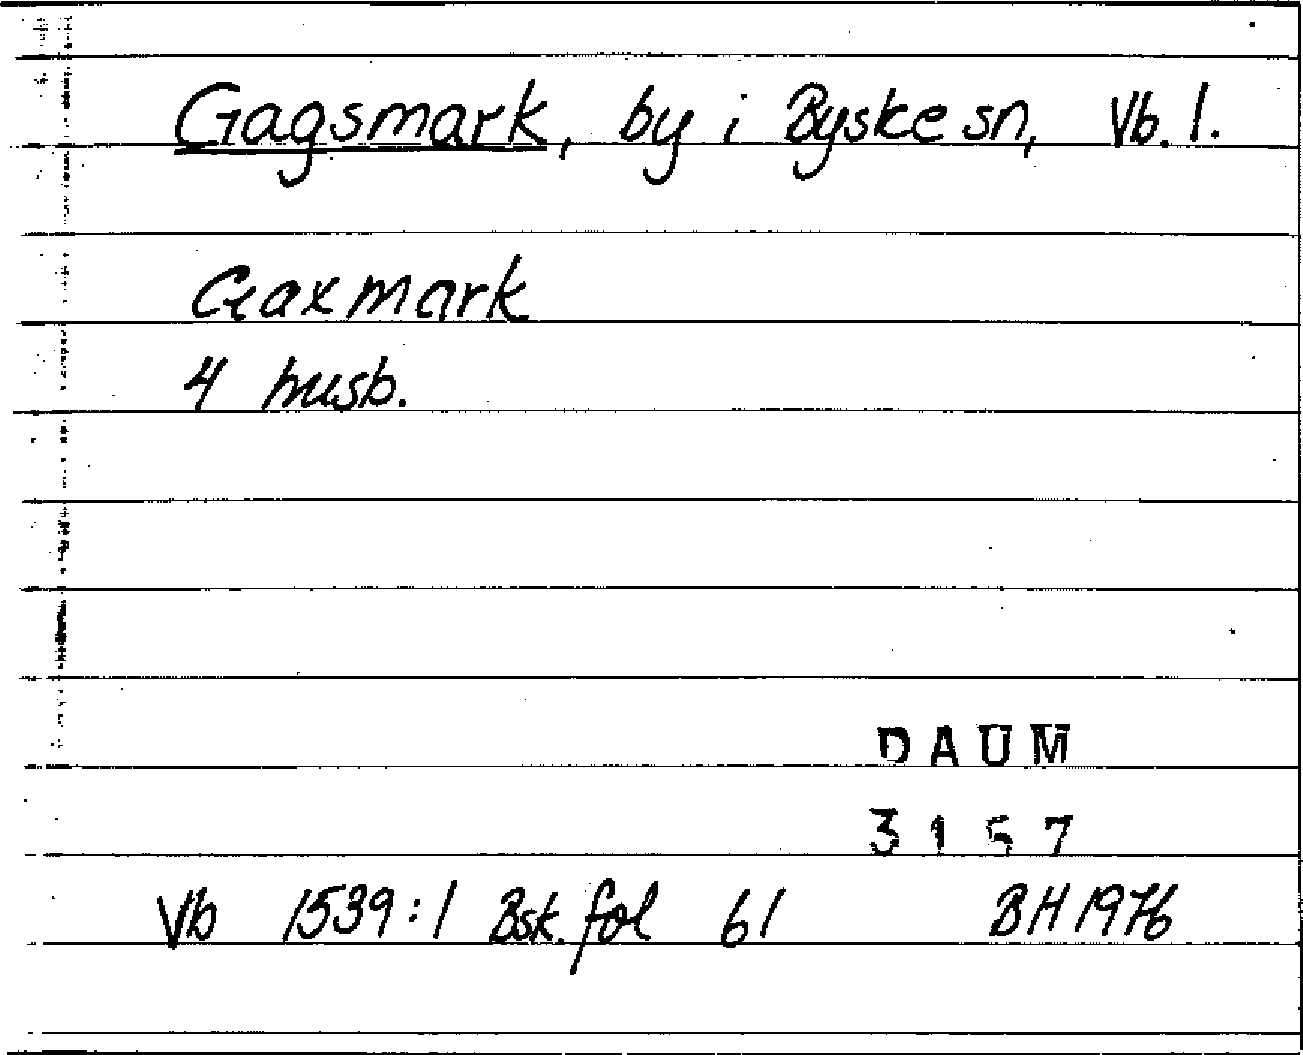 Gagsmark, by i Byske sn, Vb. l.
Gaxmark
4 husb.
DAUM
3157
Vb 1539:1 Bsk. fol 61 BH 1976